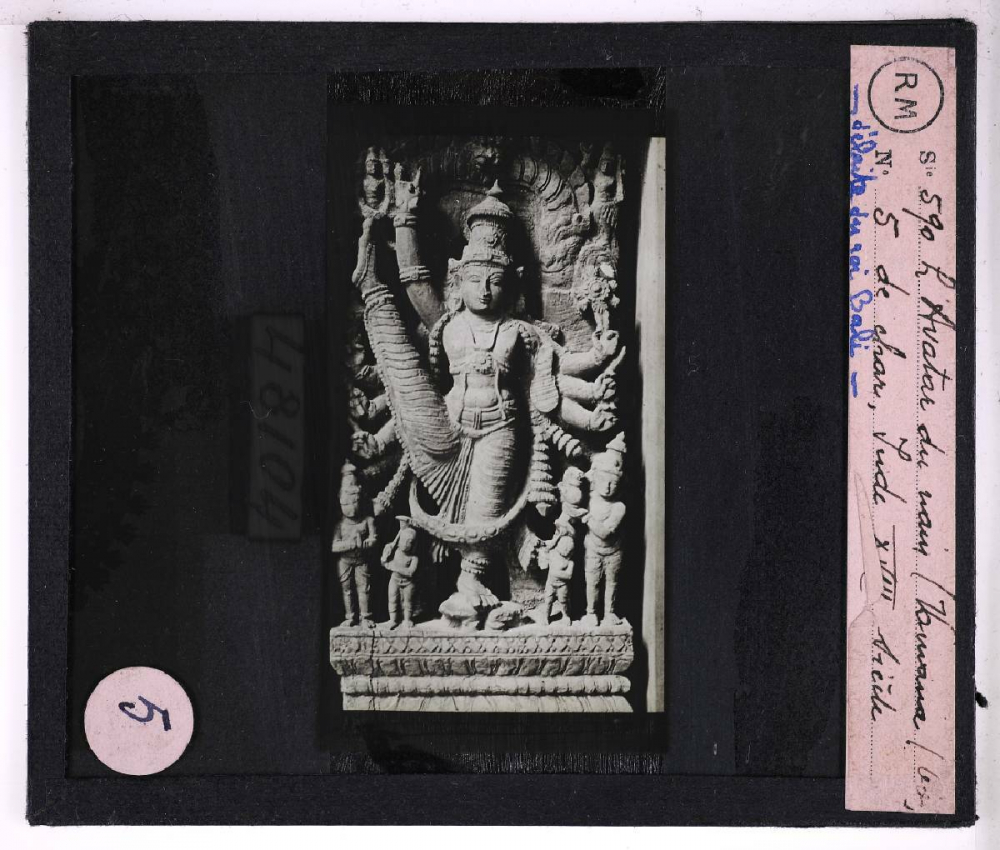 RM
Sie 590 L'Avatar du nain (Vamana)
N° 5 de char, Inde XVIII siècle
— défaite du roi Bali —
48104
5